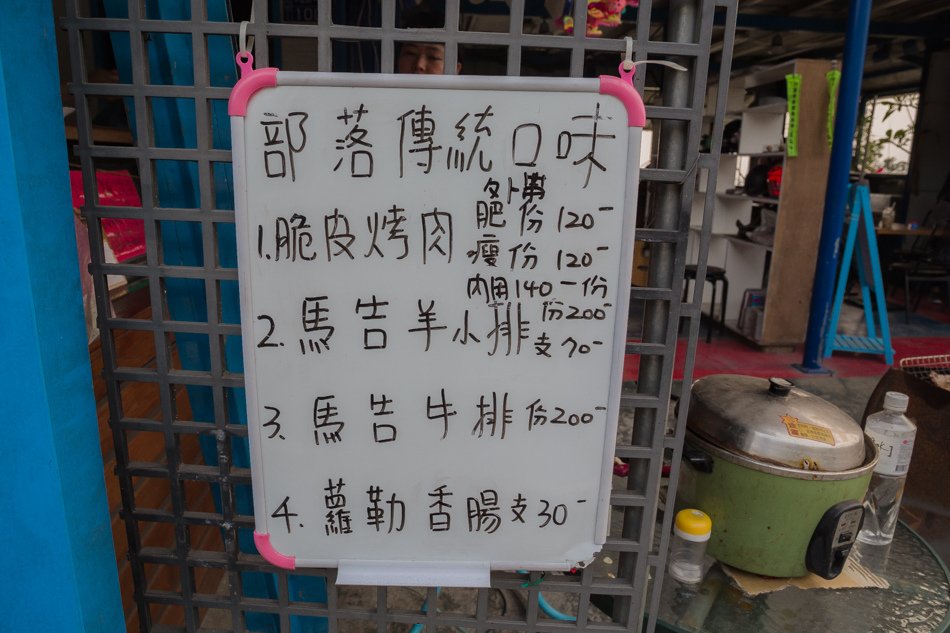 部落傳統口味
外帶
1.脆皮烤肉 肥份 120-
瘦份 120-
內用140一份
2.馬告羊小排 份200-
支70-
3.馬告牛排 份200-
4.蘿勒香腸 支30-